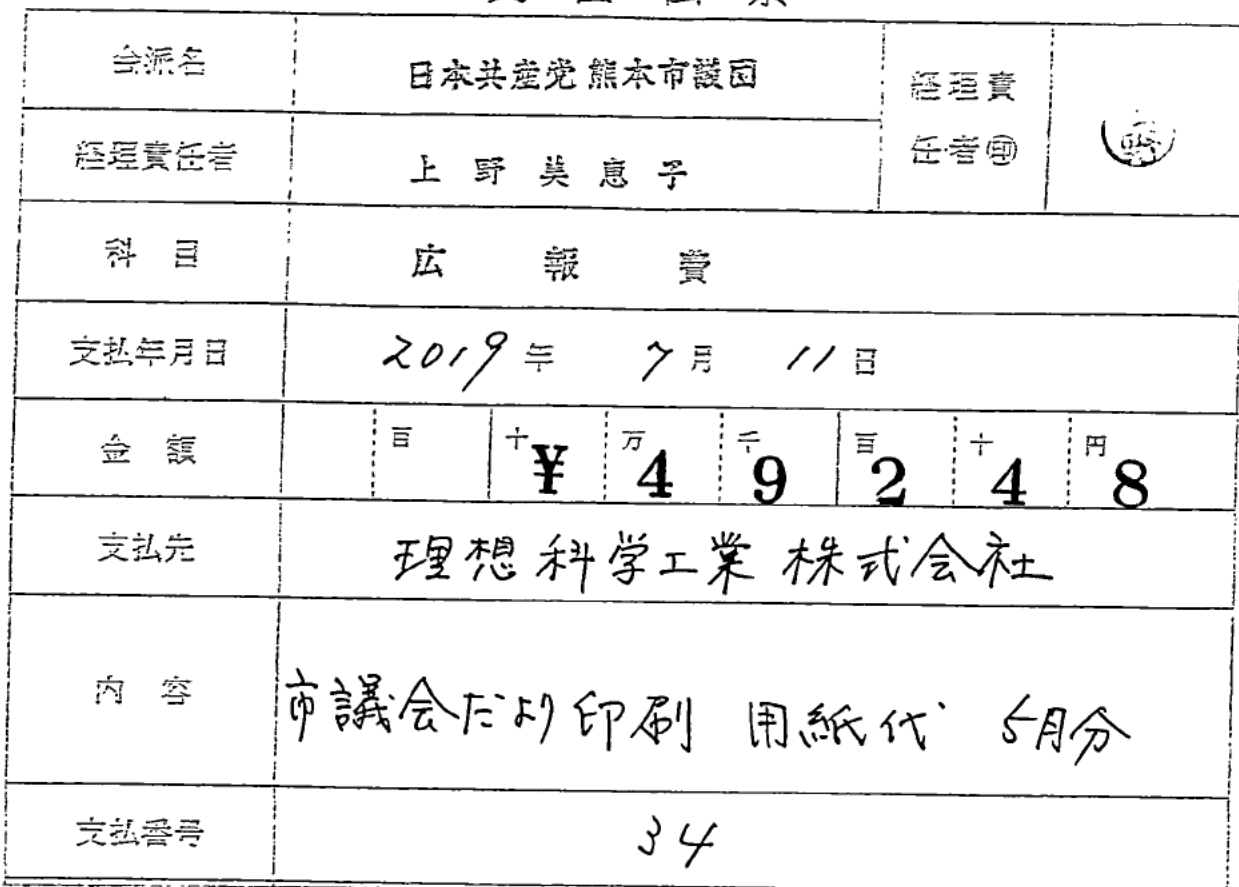 会派名 日本共産党熊本市議団 経理責任者㊞
経理責任者 上野美恵子
科目 広報費
支払年月日 2019年 7月 11日
金額 百 十 ¥ 万 4 千 9 百 2 十 4 円 8
支払先 理想科学工業株式会社
内容 市議会だより印刷 用紙代 5月分
支払番号 34